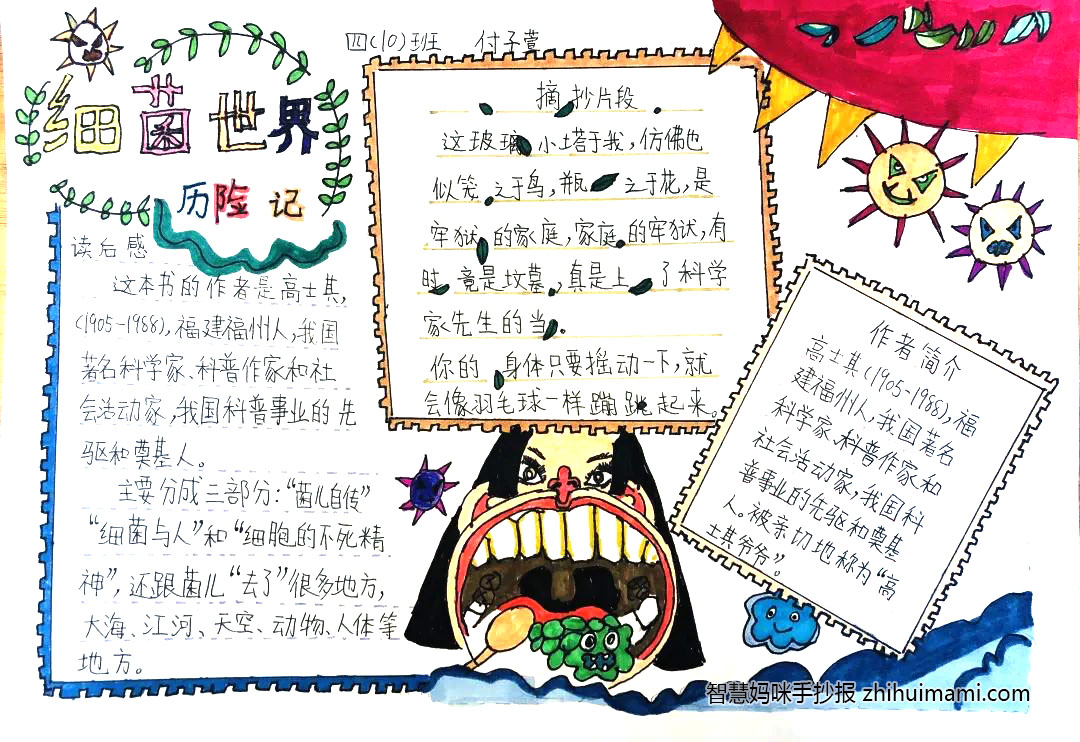 四(10)班 付子萱
细菌世界
历险记
读后感
这本书的作者是高士其,
(1905-1988),福建福州人,我国
著名科学家、科普作家和社
会活动家,我国科普事业的先
驱和奠基人。
主要分成三部分:“菌儿自传”
“细菌与人”和“细胞的不死精
神”,还跟菌儿“去了”很多地方,
大海、江河、天空、动物、人体等
地方。
摘抄片段
这玻璃小塔于我,仿佛也
似笼之于鸟,瓶之于花,是
牢狱的家庭,家庭的牢狱,有
时竟是坟墓,真是上了科学
家先生的当。
你的身体只要摇动一下,就
会像羽毛球一样蹦跳起来。
作者简介
高士其(1905-1988),福
建福州人,我国著名
科学家、科普作家和
社会活动家,我国科
普事业的先驱和奠基
人。被亲切地称为“高
士其爷爷”。
智慧妈咪手抄报 zhihuimami.com